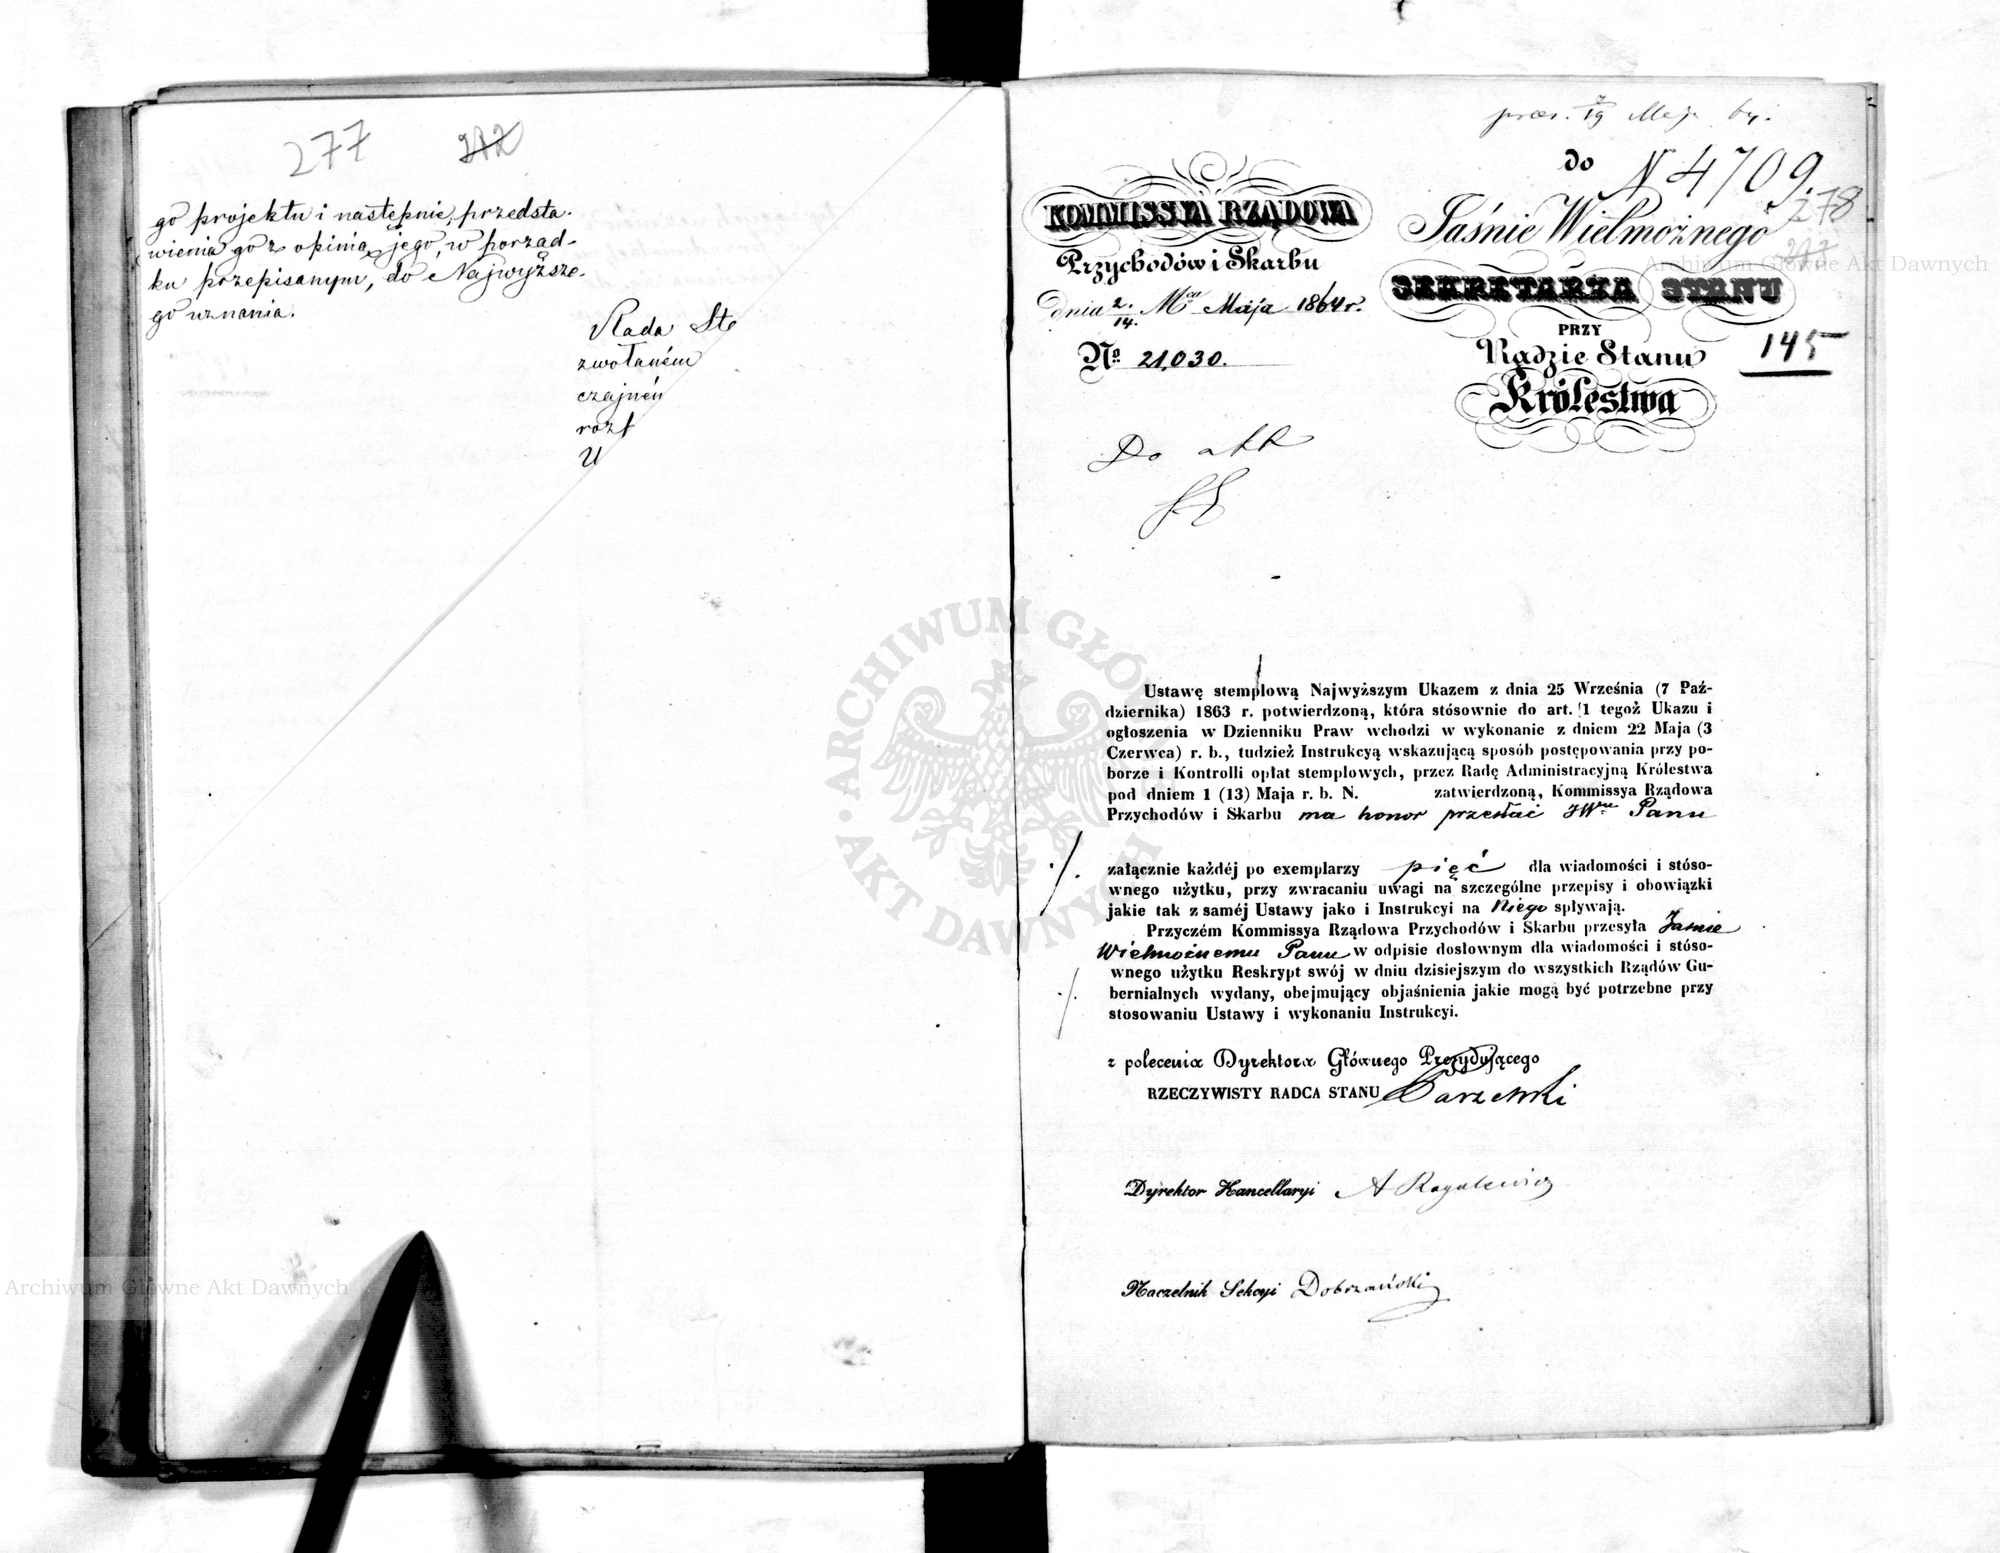 277 272
go projektu i następnie, przedsta-
wienia go z opinią jego, w porząd-
ku przepisanym, do Najwyższe-
go uznania.
Rada Sta
zwołaném
czajnéń
rozt
U
præs. 7/19 Maja 64.
do N 4709.
278
KOMMISSYA RZĄDOWA
Przychodów i Skarbu
dnia 2./14. Mca Maja 1864 r.
No 21,030.
Jaśnie Wielmożnego
SEKRETARZA STANU
PRZY
Radzie Stanu
Królestwa
145
Do akt
Ustawę stemplową Najwyższym Ukazem z dnia 25 Września (7 Paź-
dziernika) 1863 r. potwierdzoną, która stósownie do art. 1 tegoż Ukazu i
ogłoszenia w Dzienniku Praw wchodzi w wykonanie z dniem 22 Maja (3
Czerwca) r. b., tudzież Instrukcyą wskazującą sposób postępowania przy po-
borze i Kontrolli opłat stemplowych, przez Radę Administracyjną Królestwa
pod dniem 1 (13) Maja r. b. N. zatwierdzoną, Kommissya Rządowa
Przychodów i Skarbu ma honor przesłać JWmu Panu
załącznie każdéj po exemplarzy pięć dla wiadomości i stóso-
wnego użytku, przy zwracaniu uwagi na szczególne przepisy i obowiązki
jakie tak z saméj Ustawy jako i Instrukcyi na Niego spływają.
Przyczém Kommissya Rządowa Przychodów i Skarbu przesyła Jaśnie
Wielmożnemu Panu w odpisie dosłownym dla wiadomości i stóso-
wnego użytku Reskrypt swój w dniu dzisiejszym do wszystkich Rządów Gu-
bernialnych wydany, obejmujący objaśnienia jakie mogą być potrzebne przy
stosowaniu Ustawy i wykonaniu Instrukcyi.
z polecenia Dyrektora Głównego Prezydującego
RZECZYWISTY RADCA STANU Garzewski
Dyrektor Kancellaryi A Rogalewicz
Naczelnik Sekcyi Dobrzański
ARCHIWUM GŁÓWNE AKT DAWNYCH
Archiwum Główne Akt Dawnych
Archiwum Główne Akt Dawnych